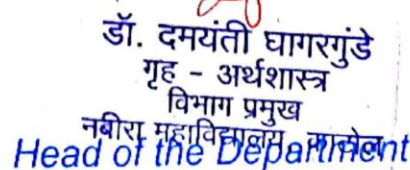 डॉ. दमयंती घागरगुंडे
गृह - अर्थशास्त्र
विभाग प्रमुख
नबीरा महाविद्यालय, काटोल
Head of the Department